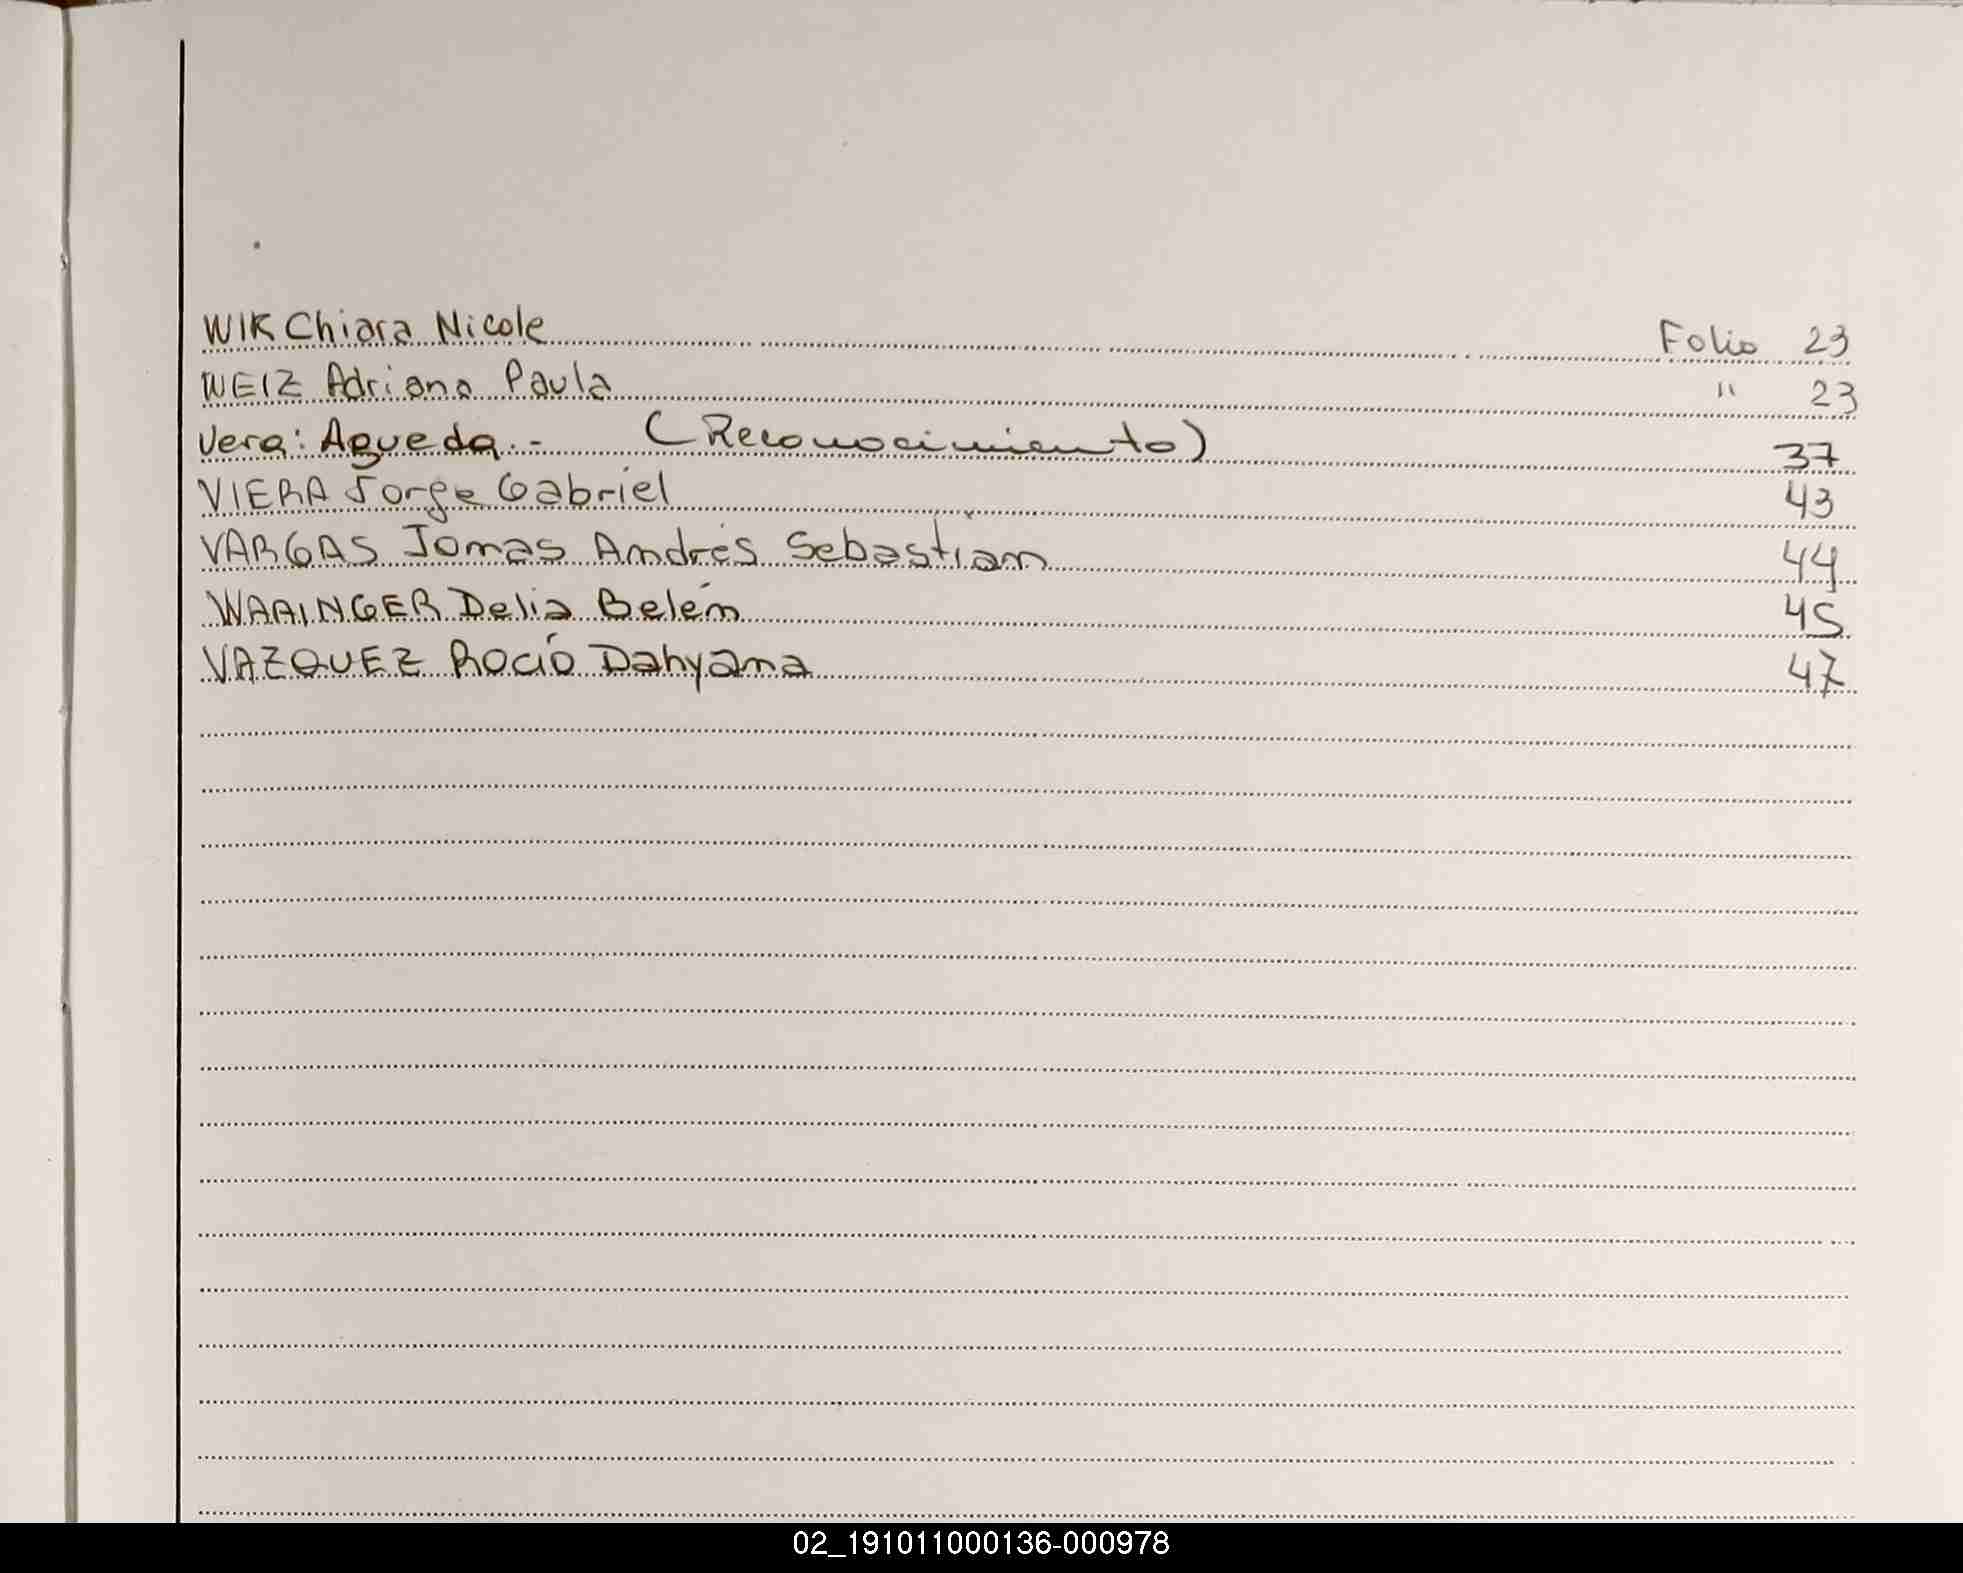 WIK Chiara Nicole Folio 23
WEIZ Adriana Paula " 23
Vera: Agueda.- (Reconocimiento) 37
VIERA Jorge Gabriel 43
VARGAS Tomas Andrés Sebastian 44
WRAINGER Delia Belén 45
VAZQUEZ Rocío Dahyana 47
02_191011000136-000978